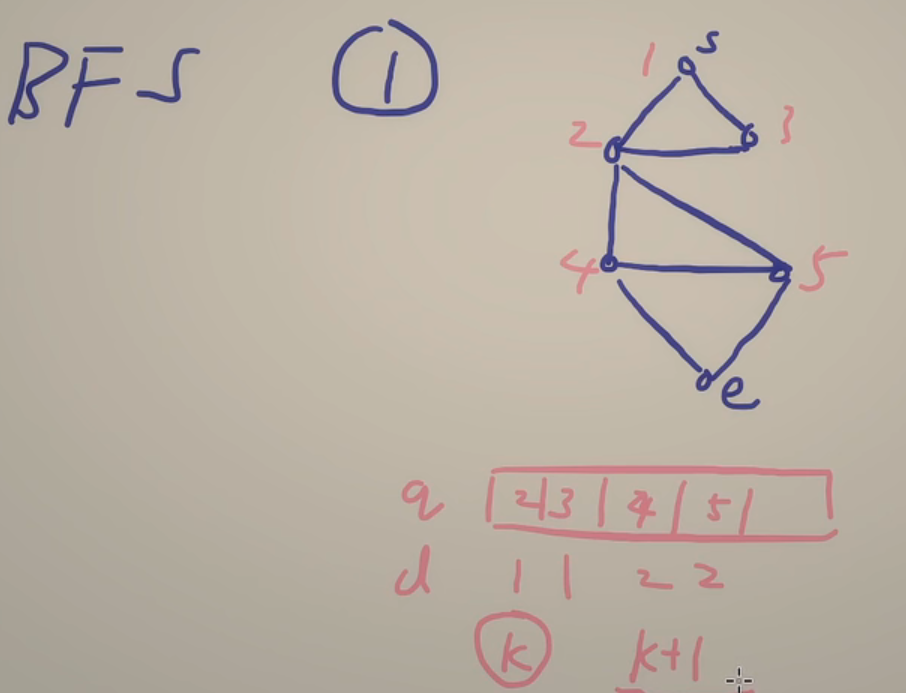 BFS 1
1 s
2 3
4 5
e
q 2 3 4 5
d 1 1 2 2
k k+1